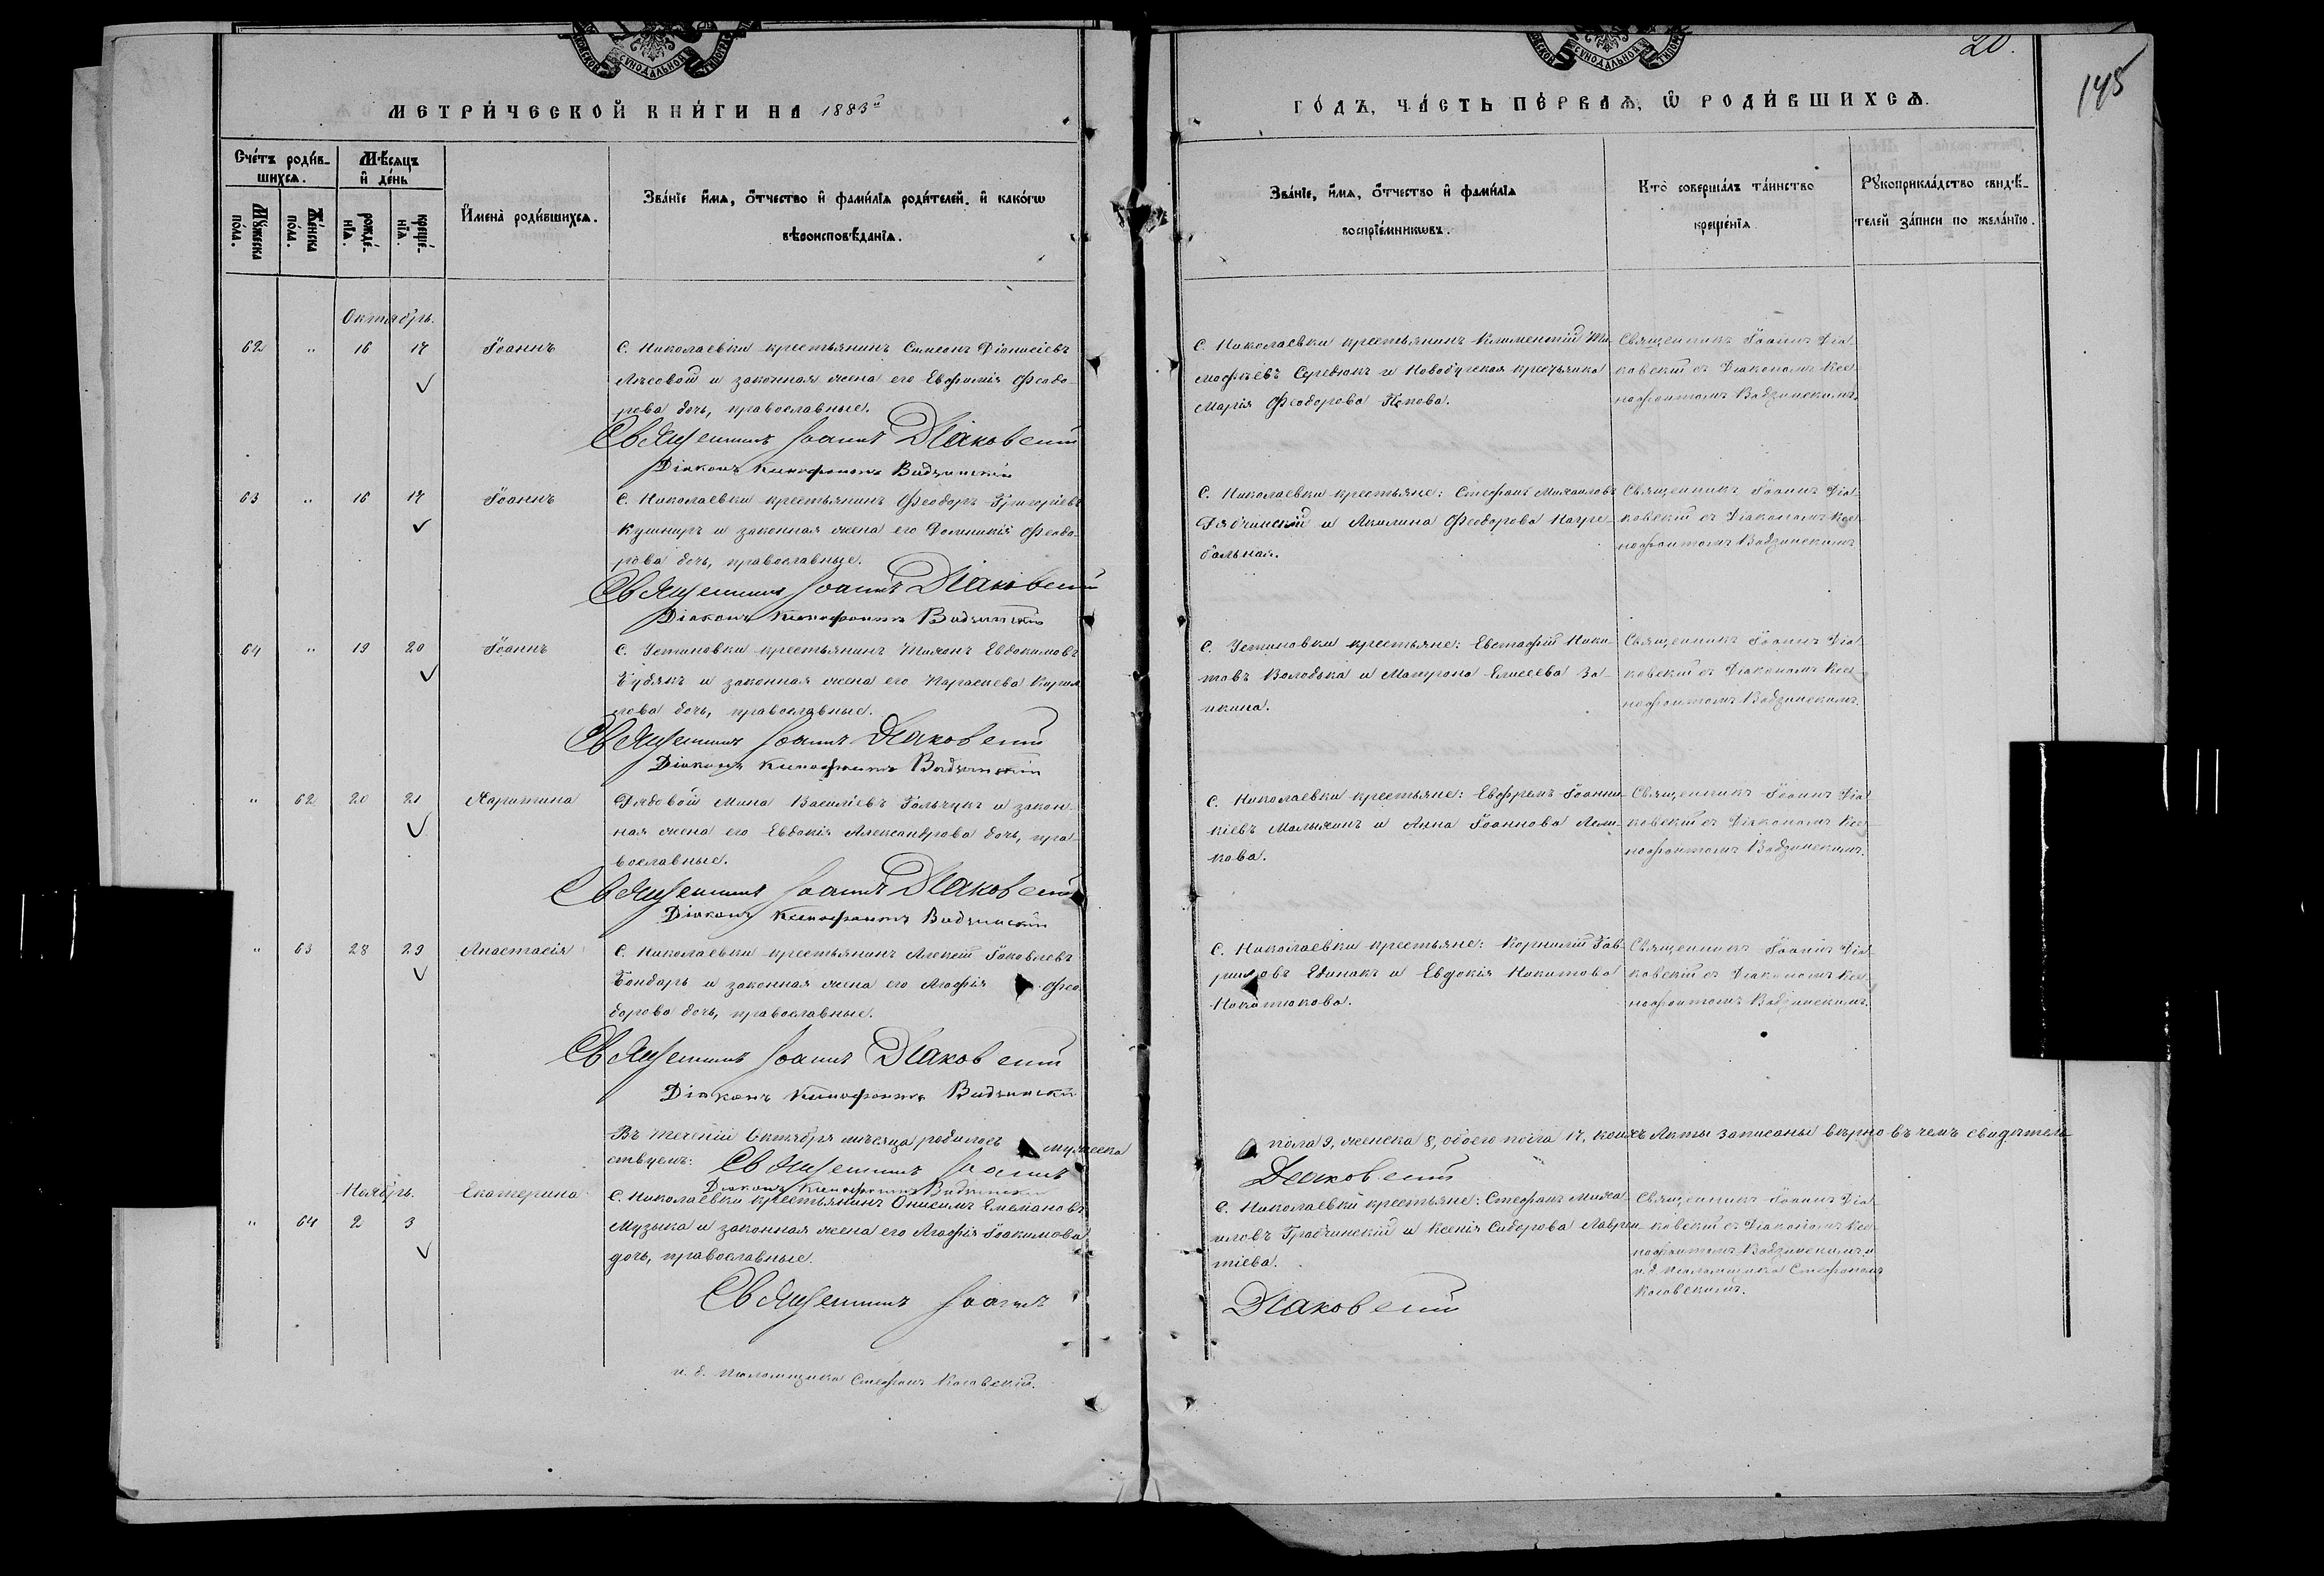 20.
145
МЕТРИЧЕСКОЙ КНИГИ НА 1883й
ГОДЪ, ЧАСТЬ ПЕРВАЯ, Ѿ РОДИВШИХСЯ.
Счетъ родив-
шихся.
Мѣсяцъ
и день
Мужеска
пола.
Женска
пола.
рожде-
нія.
креще-
нія.
Имена родившихся.
Званіе имя, отчество и фамилія родителей, и какогѡ
вѣроисповѣданія.
Званіе, имя, отчество и фамилія
воспріемниковъ.
Кто совершалъ таинство
крещенія
Рукоприкладство свидѣ-
телей записи по желанію.
Октябрь.
62 " 16 17 Іоаннъ
С. Николаевки крестьянинъ Симеонъ Діонисіевъ
Лѣсовой и законная жена его Евфимія Феодо-
рова дочь, православные.
Священникъ Іоаннъ Діаковскій
Діаконъ Ксенофонтъ Вадзинскій
С. Николаевки крестьянинъ Климентій Ти-
мофѣевъ Середюкъ и Новобугская крестьянка
Марія Феодорова
Священникъ Іоаннъ Діа-
ковскій съ Діакономъ Ксе-
нофонтомъ Вадзинскимъ.
63 " 16 17 Іоаннъ
С. Николаевки крестьянинъ Феодоръ Григоріевъ
Кушниръ и законная жена его Домникія Феодо-
рова дочь, православные.
Священникъ Іоаннъ Діаковскій
Діаконъ Ксенофонтъ Вадзинскій
С. Николаевки крестьяне: Стефанъ Михаиловъ
и Акилина Феодорова
бальная.
Священникъ Іоаннъ Діа-
ковскій съ Діакономъ Ксе-
нофонтомъ Вадзинскимъ
64 " 19 20 Іоаннъ
С. Устиновки крестьянинъ Тимонъ Евдокимовъ
Будякъ и законная жена его Параскева Кирил-
рова дочь, православные.
Священникъ Іоаннъ Діаковскій
Діаконъ Ксенофонтъ Вадзинскій
С. Устиновки крестьяне: Евстафій Ники-
товъ Володька и Матрона Елисеева За-
икина.
Священникъ Іоаннъ Діа-
ковскій съ Діакономъ Ксе-
нофонтомъ Вадзинскимъ.
" 62 20 21 Харитина
Рядовой Мина Василіевъ Гальчукъ и закон-
ная жена его Евдокія Александрова дочь, пра-
вославные.
Священникъ Іоаннъ Діаковскій
Діаконъ Ксенофонтъ Вадзинскій
С. Николаевки крестьяне: Евфремъ Іоанни-
кіевъ и Анна Іоаннова
кова.
Священникъ Іоаннъ Діа-
ковскій съ Діакономъ Ксе-
нофонтомъ Вадзинскимъ.
" 63 28 29 Анастасія
С. Николаевки крестьянинъ Алексій Іаковлевъ
Бондарь и законная жена его Агафія Фео-
дорова дочь, православные.
Священникъ Іоаннъ Діаковскій
Діаконъ Ксенофонтъ Вадзинскій
С. Николаевки крестьяне: Корнилій Гав-
риловъ Единакъ и Евдокія Никитова
Никитюкова.
Священникъ Іоаннъ Діа-
ковскій съ Діакономъ Ксе-
нофонтомъ Вадзинскимъ.
Въ теченіи Октября мѣсяца родилось мужеска пола 9, женска 8, обоего пола 17, коихъ Акты записаны вѣрно въ чемъ свидѣтель-
ствуемъ: Священникъ Іоаннъ Діаковскій
Діаконъ Ксенофонтъ Вадзинскій
Ноябрь.
" 64 2 3 Екатерина
С. Николаевки крестьянинъ Онисимъ Емельяновъ
Музыка и законная жена его Агафія Іоакимова
дочь, православные.
С. Николаевки крестьяне: Стефанъ Миха-
иловъ Грабчинскій и Ксенія Сидорова Лаврен-
тіева.
Священникъ Іоаннъ Діа-
ковскій съ Діакономъ Ксе-
нофонтомъ Вадзинскимъ и
и. д. псаломщика Стефаномъ
Косовскимъ.
Священникъ Іоаннъ Діаковскій
и. д. псаломщика Стефанъ Косовскій.